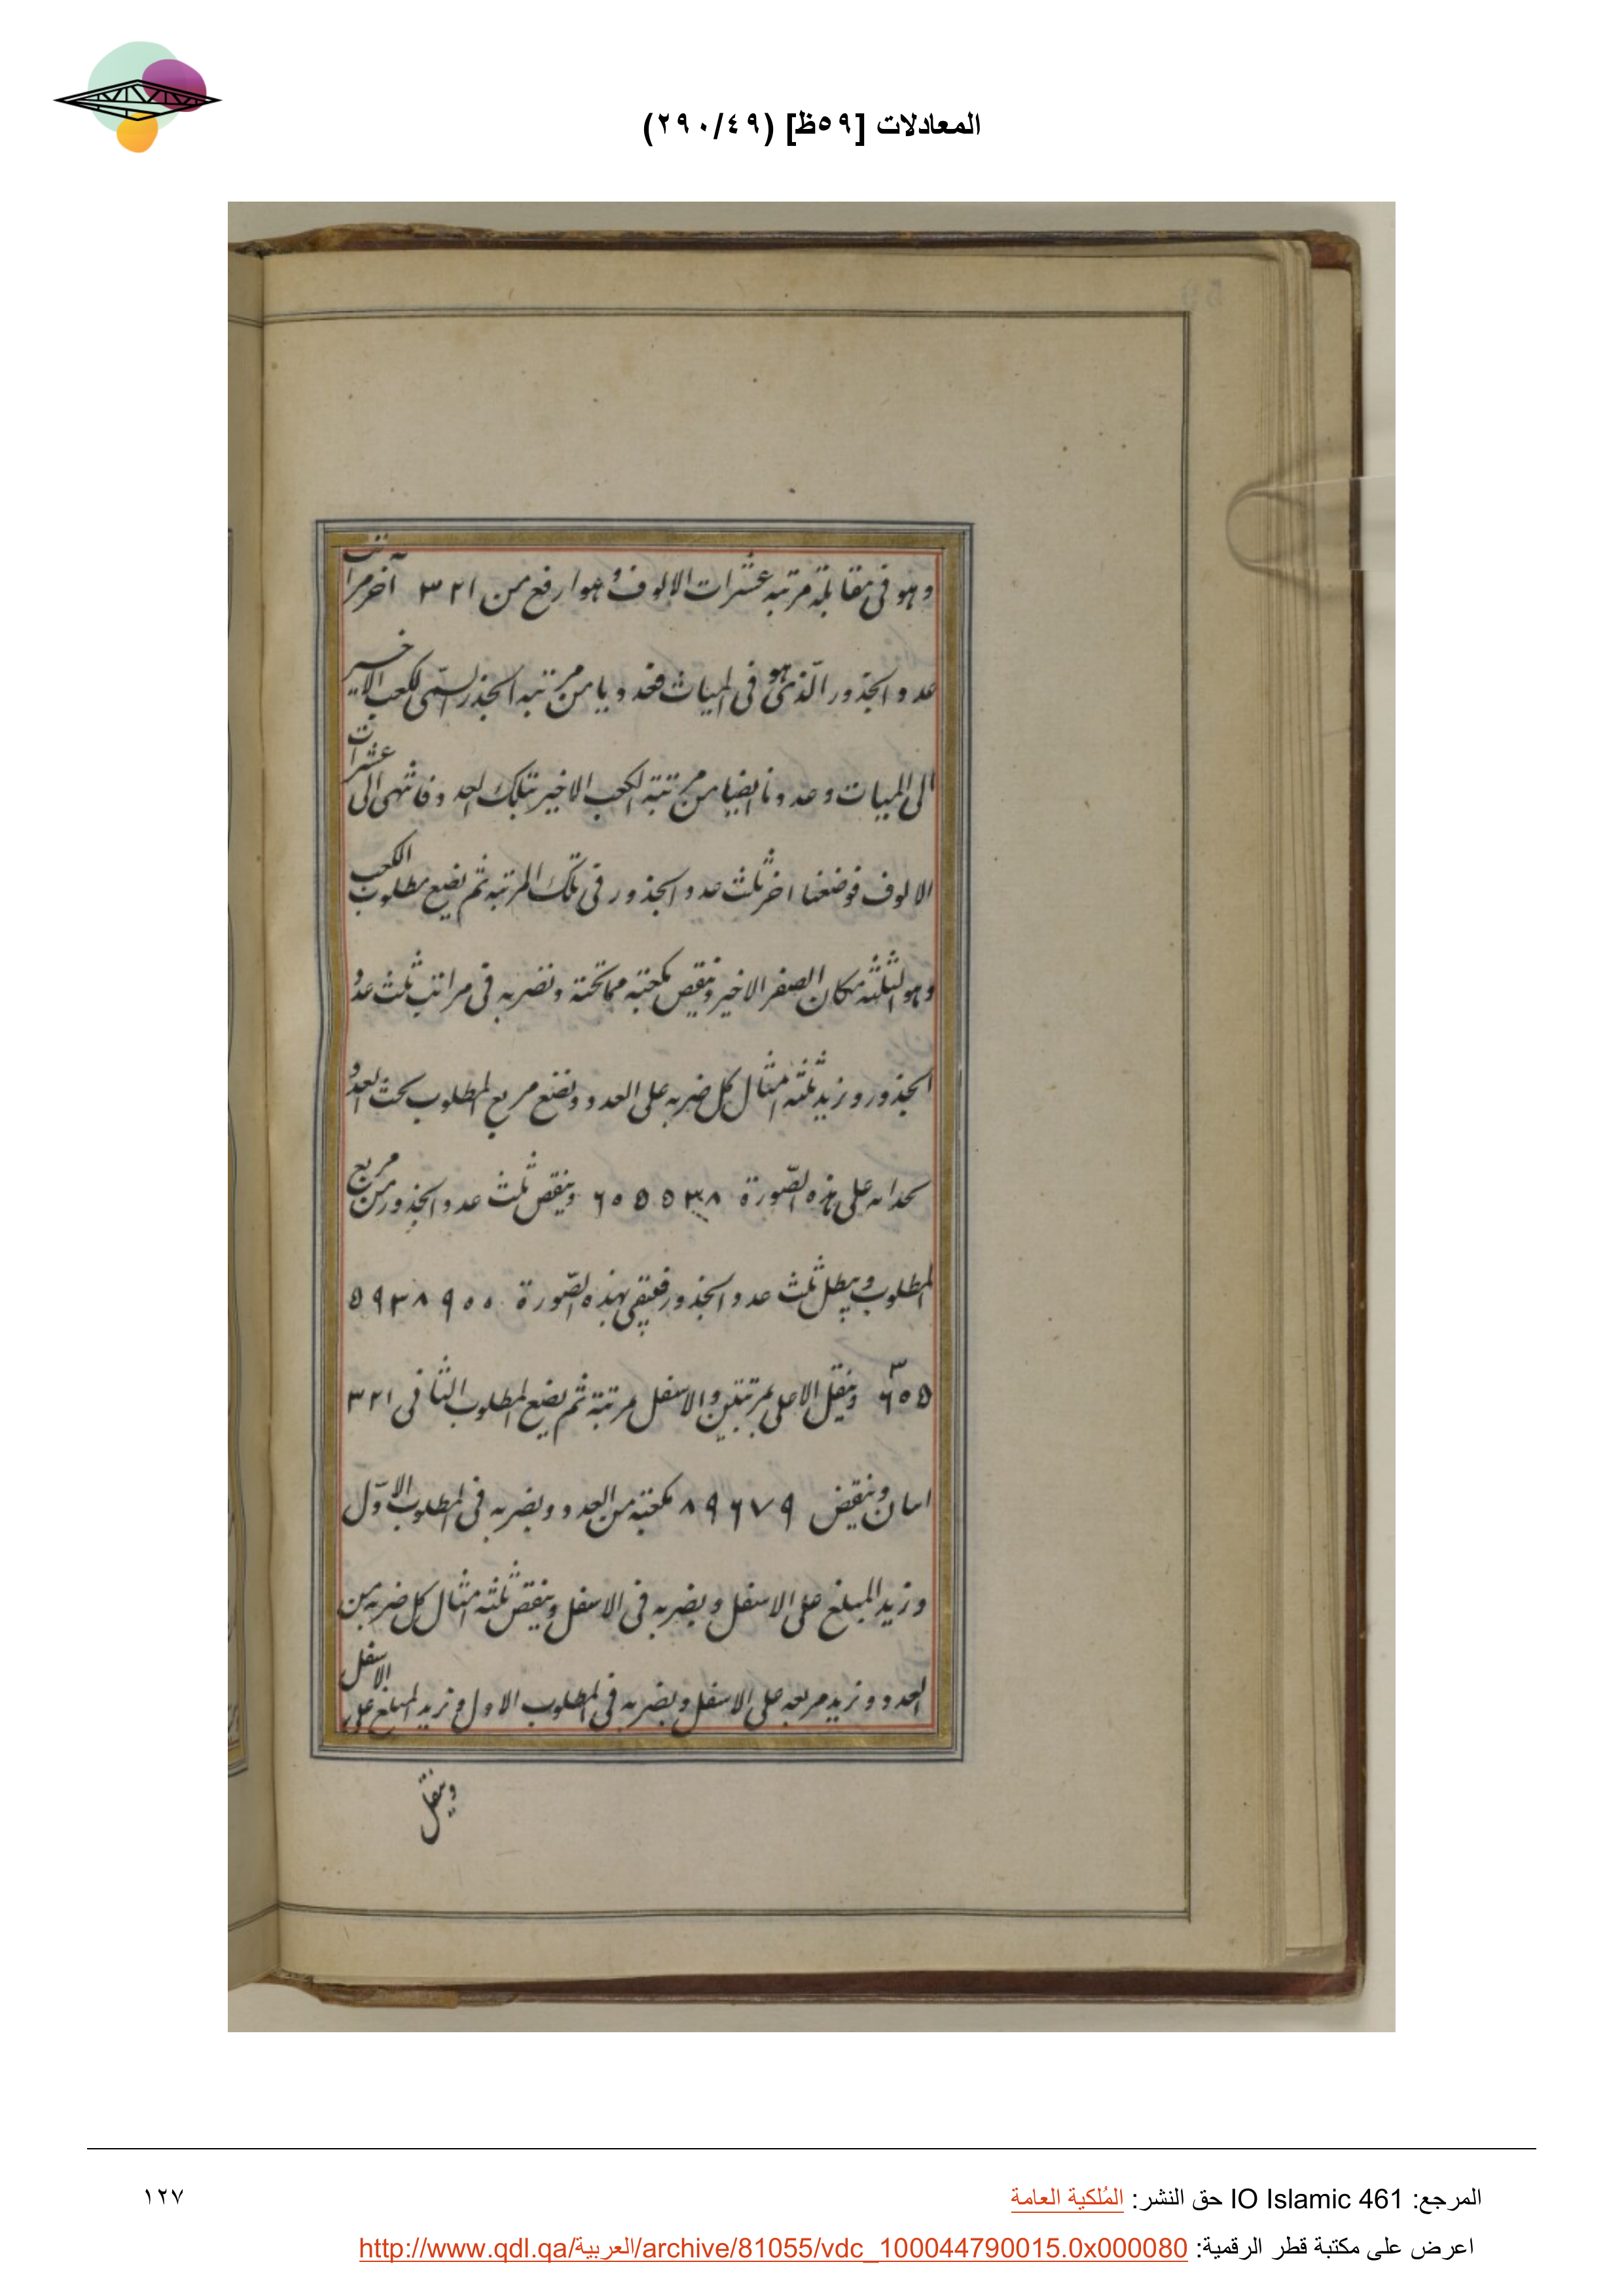 المعادلات [٥٩ظ] (٢٩٠/٤٩)
وهو فى مقابلة مرتبه عشرات الالوف وهو ارفع من ٣٢١ آخر مراتب
عدد الجذور الّذى هو فى الميات فعددنا من مرتبه الجذر السمى لكعب الاخير
الى الميات وعددنا ايضا من مرتبة الكعب الاخير بتلك العدد فانتهى الى عشرات
الالوف فوضعنا اخر ثلث عدد الجذور فى تلك المرتبه ثم نضع مطلوب الكعب
وهو الثلثه مكان الصفر الاخير وننقص مكعبه مما تحته ونضربه فى مراتب ثلث عدد
الجذور ونزيد ثلثه امثال كل ضربه على العدد ونضع مربع المطلوب تحت العدد
بحذائه على هذه الصّورة ٦٥٥٥٣٨ وينقص ثلث عدد الجذور من مربع
المطلوب ويبطل ثلث عدد الجذور فيبقى بهذه الصّورة ٥٩٣٨٩٥٥
٣
٦٥٥ وينقل الاعلى بمرتبتين والاسفل مرتبة ثم يضع المطلوب الثانى ٣٢١
وينقص ٨٩٦٧٩ مكعبه من العدد ويضربه فى المطلوب الاوّل
ونزيد المبلغ على الاسفل ويضربه فى الاسفل وينقص ثلثه امثال كل ضربه من
العدد ونزيد مربعه على الاسفل ويضربه فى المطلوب الاول ونزيد المبلغ على الاسفل
وينقل
المرجع: IO Islamic 461 حق النشر: المُلكية العامة
١٢٧
اعرض على مكتبة قطر الرقمية: http://www.qdl.qa/العربية/archive/81055/vdc_100044790015.0x000080